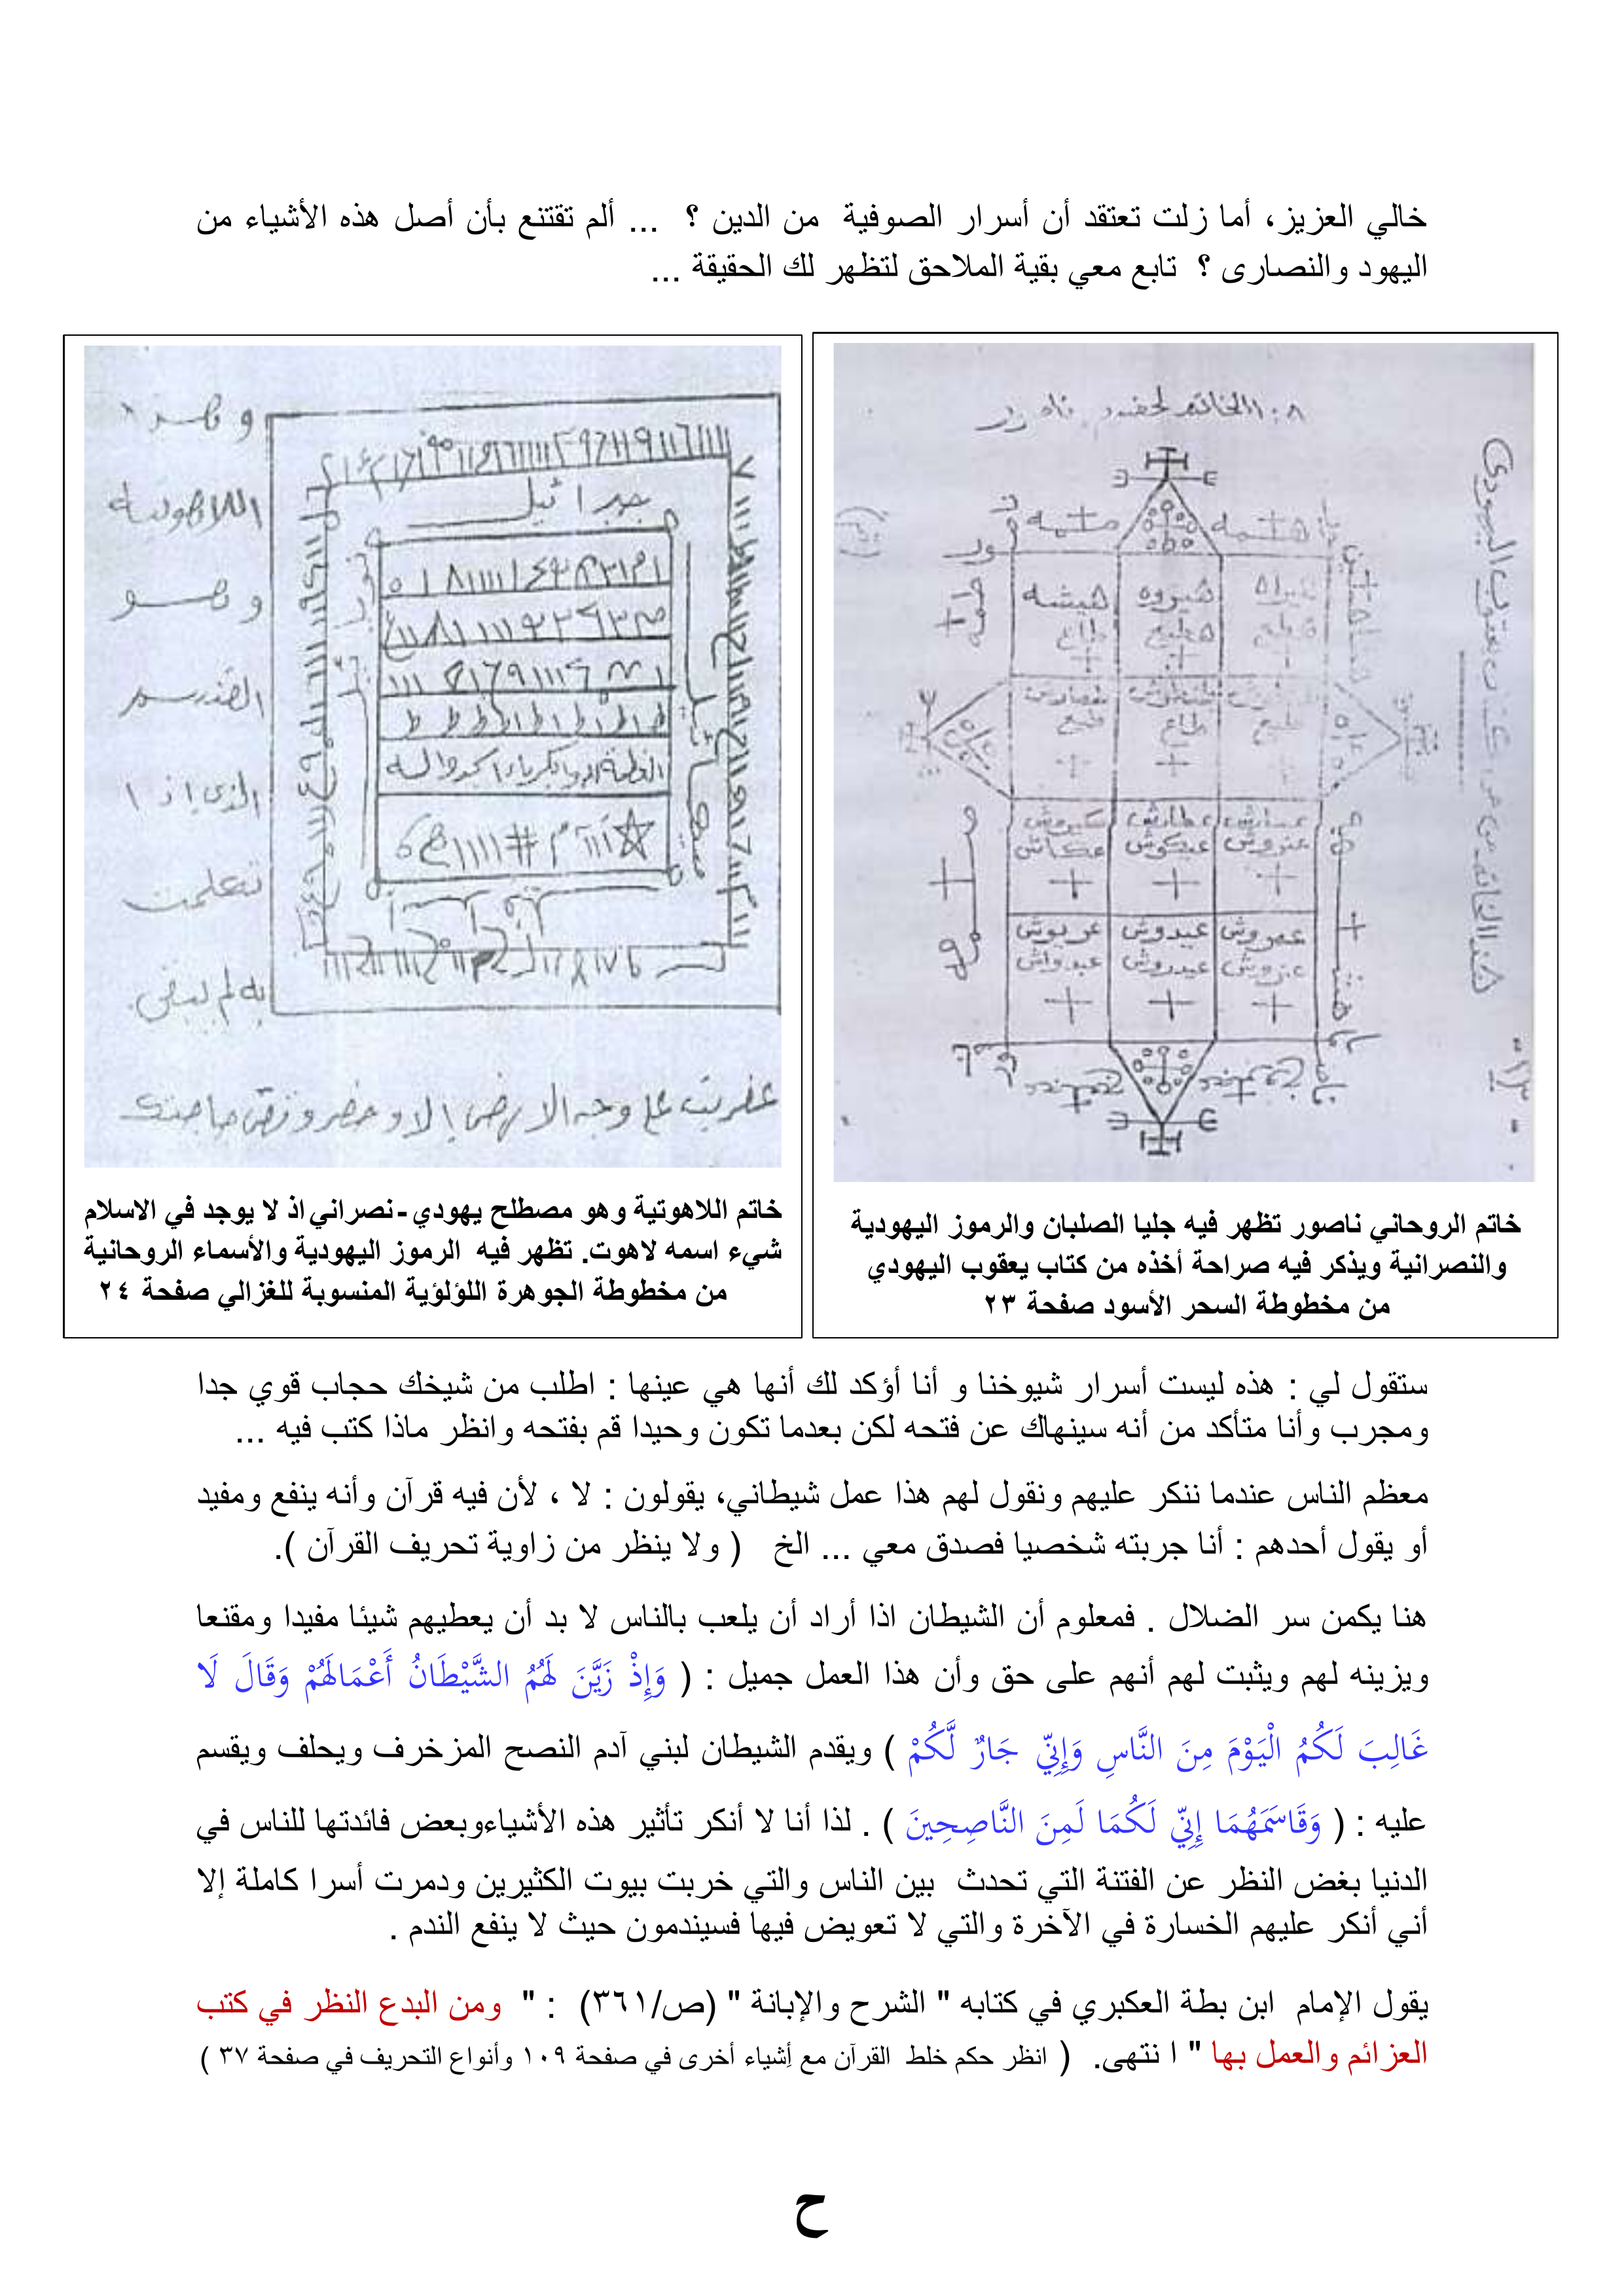 خالي العزيز، أما زلت تعتقد أن أسرار الصوفية من الدين ؟ ... ألم تقتنع بأن أصل هذه الأشياء من
اليهود والنصارى ؟ تابع معي بقية الملاحق لتظهر لك الحقيقة ...
هيشه هيروه
طاع
عطارش
عيدكوش
عكاش
عربوش عيدوش عمروش
هذا الخاتم
اليهودى
جبرائيل
وهذه
اللاهوتية
وهو
القسم
الذي اذا
تكلمت
به لم يبقى
عفريت على وجه الارض إلا وحضر وقضى حاجتك
خاتم الروحاني ناصور تظهر فيه جليا الصلبان والرموز اليهودية
والنصرانية ويذكر فيه صراحة أخذه من كتاب يعقوب اليهودي
من مخطوطة السحر الأسود صفحة ٢٣
خاتم اللاهوتية وهو مصطلح يهودي - نصراني اذ لا يوجد في الاسلام
شيء اسمه لاهوت. تظهر فيه الرموز اليهودية والأسماء الروحانية
من مخطوطة الجوهرة اللؤلؤية المنسوبة للغزالي صفحة ٢٤
ستقول لي : هذه ليست أسرار شيوخنا و أنا أؤكد لك أنها هي عينها : اطلب من شيخك حجاب قوي جدا
ومجرب وأنا متأكد من أنه سينهاك عن فتحه لكن بعدما تكون وحيدا قم بفتحه وانظر ماذا كتب فيه ...
معظم الناس عندما ننكر عليهم ونقول لهم هذا عمل شيطاني، يقولون : لا ، لأن فيه قرآن وأنه ينفع ومفيد
أو يقول أحدهم : أنا جربته شخصيا فصدق معي ... الخ ( ولا ينظر من زاوية تحريف القرآن ).
هنا يكمن سر الضلال . فمعلوم أن الشيطان اذا أراد أن يلعب بالناس لا بد أن يعطيهم شيئا مفيدا ومقنعا
ويزينه لهم ويثبت لهم أنهم على حق وأن هذا العمل جميل : ( وَإِذْ زَيَّنَ لَهُمُ الشَّيْطَانُ أَعْمَالَهُمْ وَقَالَ لَا
غَالِبَ لَكُمُ الْيَوْمَ مِنَ النَّاسِ وَإِنِّي جَارٌ لَّكُمْ ) ويقدم الشيطان لبني آدم النصح المزخرف ويحلف ويقسم
عليه : ( وَقَاسَمَهُمَا إِنِّي لَكُمَا لَمِنَ النَّاصِحِينَ ) . لذا أنا لا أنكر تأثير هذه الأشياءوبعض فائدتها للناس في
الدنيا بغض النظر عن الفتنة التي تحدث بين الناس والتي خربت بيوت الكثيرين ودمرت أسرا كاملة إلا
أني أنكر عليهم الخسارة في الآخرة والتي لا تعويض فيها فسيندمون حيث لا ينفع الندم .
يقول الإمام ابن بطة العكبري في كتابه " الشرح والإبانة " (ص/٣٦١) : " ومن البدع النظر في كتب
العزائم والعمل بها " ا نتهى. ( انظر حكم خلط القرآن مع أشياء أخرى في صفحة ١٠٩ وأنواع التحريف في صفحة ٣٧ )
ح